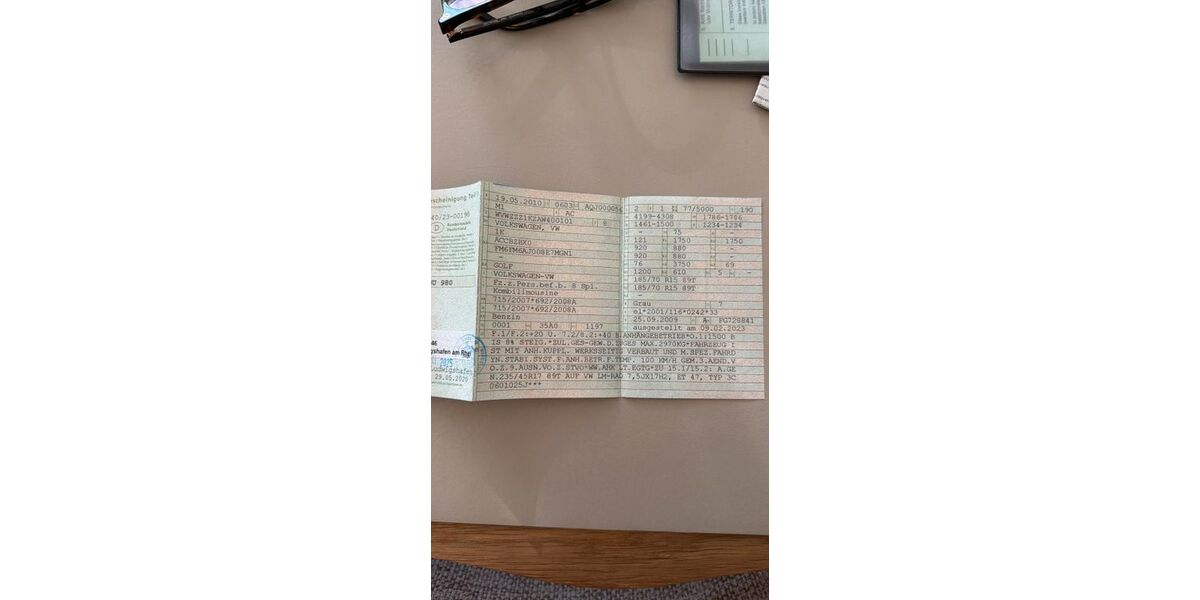 scheinigung Teil
D
U 980
46
gshafen am Rhei
2025
Ludwigshafen
29.05.2020
19.05.2010 0603 AQJ000054
M1 AC
WVWZZZ1KZAW400101 8
VOLKSWAGEN, VW
1K
ACCBZBX0
FM6FM6AJ008E7MGN1
-
GOLF
VOLKSWAGEN-VW
Fz.z.Pers.bef.b. 8 Spl.
Kombilimousine
715/2007*692/2008A
715/2007*692/2008A
Benzin
0001 35A0 1197
2 1 77/5000 190
4199-4308 1786-1786
1461-1500 1234-1234
- 75 -
121 1750 1750
920 880 -
920 880 -
76 3750 69
1200 610 5 -
185/70 R15 89T
185/70 R15 89T
-
Grau 7
e1*2001/116*0242*33
25.09.2009 A FG728841
ausgestellt am 09.02.2023
F.1/F.2:+20 U. 7.2/8.2:+40 B.ANHÄNGEBETRIEB*O.1:1500 B
IS 8% STEIG.*ZUL.GES-GEW.D.ZUGES MAX.2970KG*FAHRZEUG I
ST MIT ANH.KUPPL. WERKSSEITIG VERBAUT UND M.SPEZ.FAHRD
YN.STABI.SYST.F.ANH.BETR.F.TEMP. 100 KM/H GEM.3.AEND.V
O.Z.9.AUSN.VO.Z.STVO*WW.AHK LT.EGTG*ZU 15.1/15.2: A.GE
N.235/45R17 89T AUF VW LM-RAD 7,5JX17H2, ET 47, TYP 3C
0601025J***